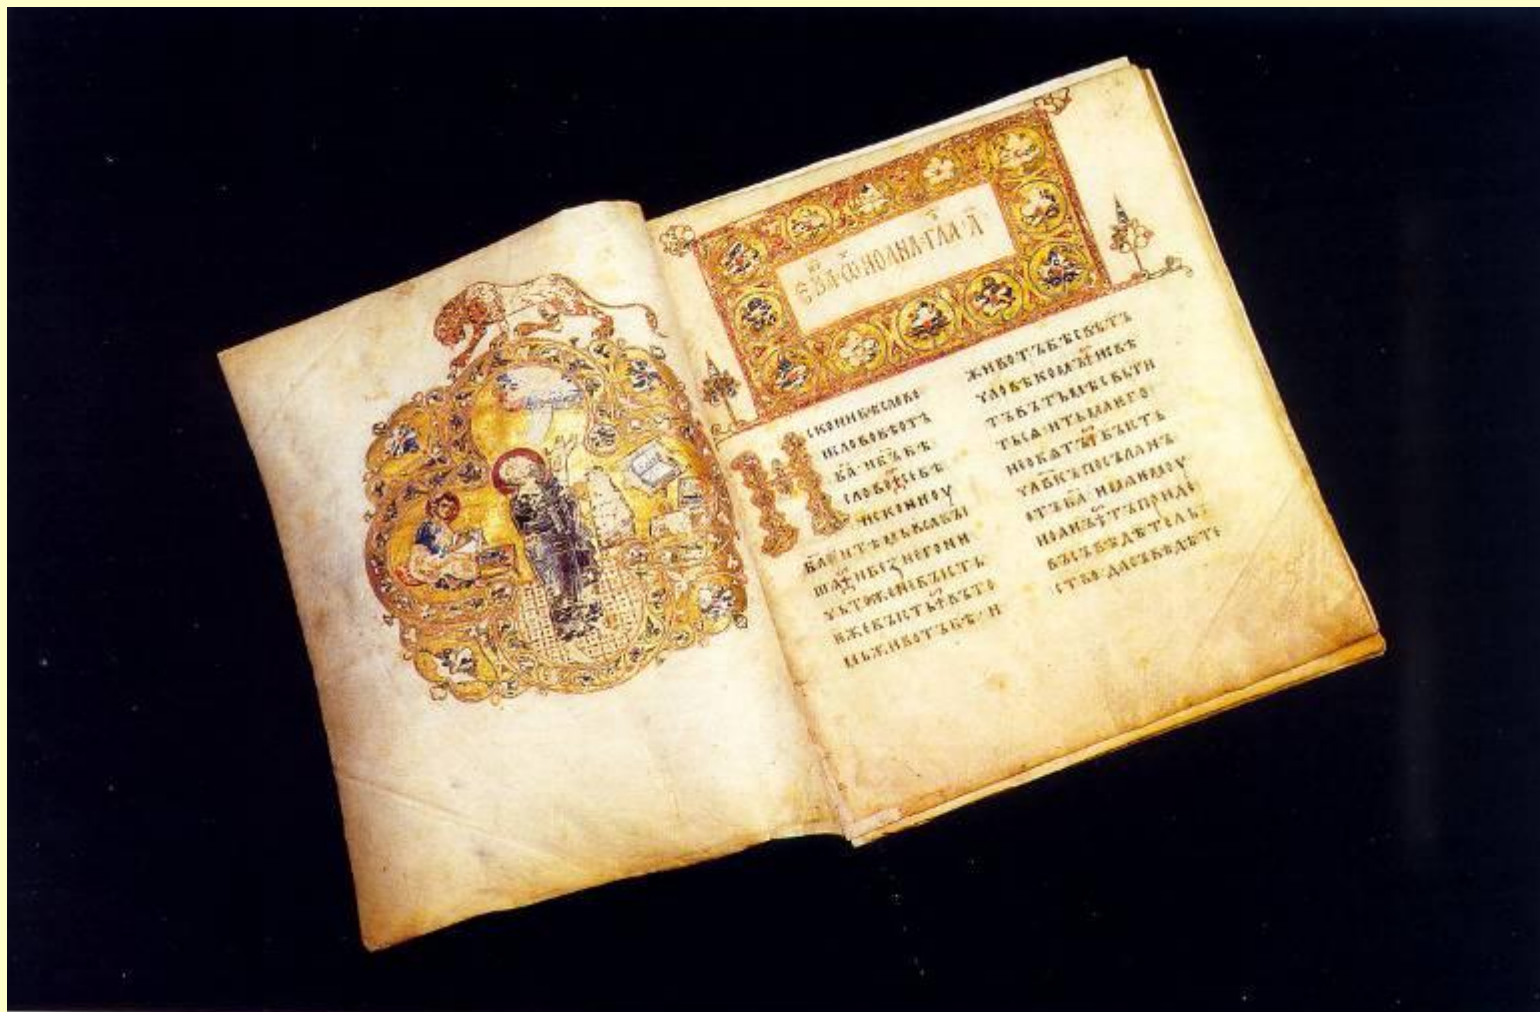 ЕВА · Ѿ ИОАНА · ГЛА · А ·
ИСКОНИ БѢ СЛОВО
И СЛОВО БѢ ОТЪ
БА · И БЪ БѢ
СЛОВО · СЕ БѢ
ИСКОНИ ОУ
БА · И ТѢМЬ ВЬСѦ БЫ
ША · И БЕЗ НЕГО НИ
ЧЬТОЖЕ НЕ БЫСТЬ
ѤЖЕ БЫСТЬ · ВЪ ТО
МЬ ЖИВОТЪ БѢ · И
ЖИВОТЪ БѢ СВѢТЪ
ЧЛОВѢКОМЪ · И СВѢ
ТЪ ВЪ ТЬМѢ СВЬТИ
ТЬСѦ · И ТЬМА ѤГО
НЕ ОБѦТЪ · БЫСТЬ
ЧЛВКЪ ПОСЪЛАНЪ
ОТЪ БА · ИМѦ ѤМОУ
ИОАНЪ · ТЪ ПРИДЕ
ВЪ СЪВѢДѢТЕЛЬ
СТВО · ДА СЪВѢДѢТЕ